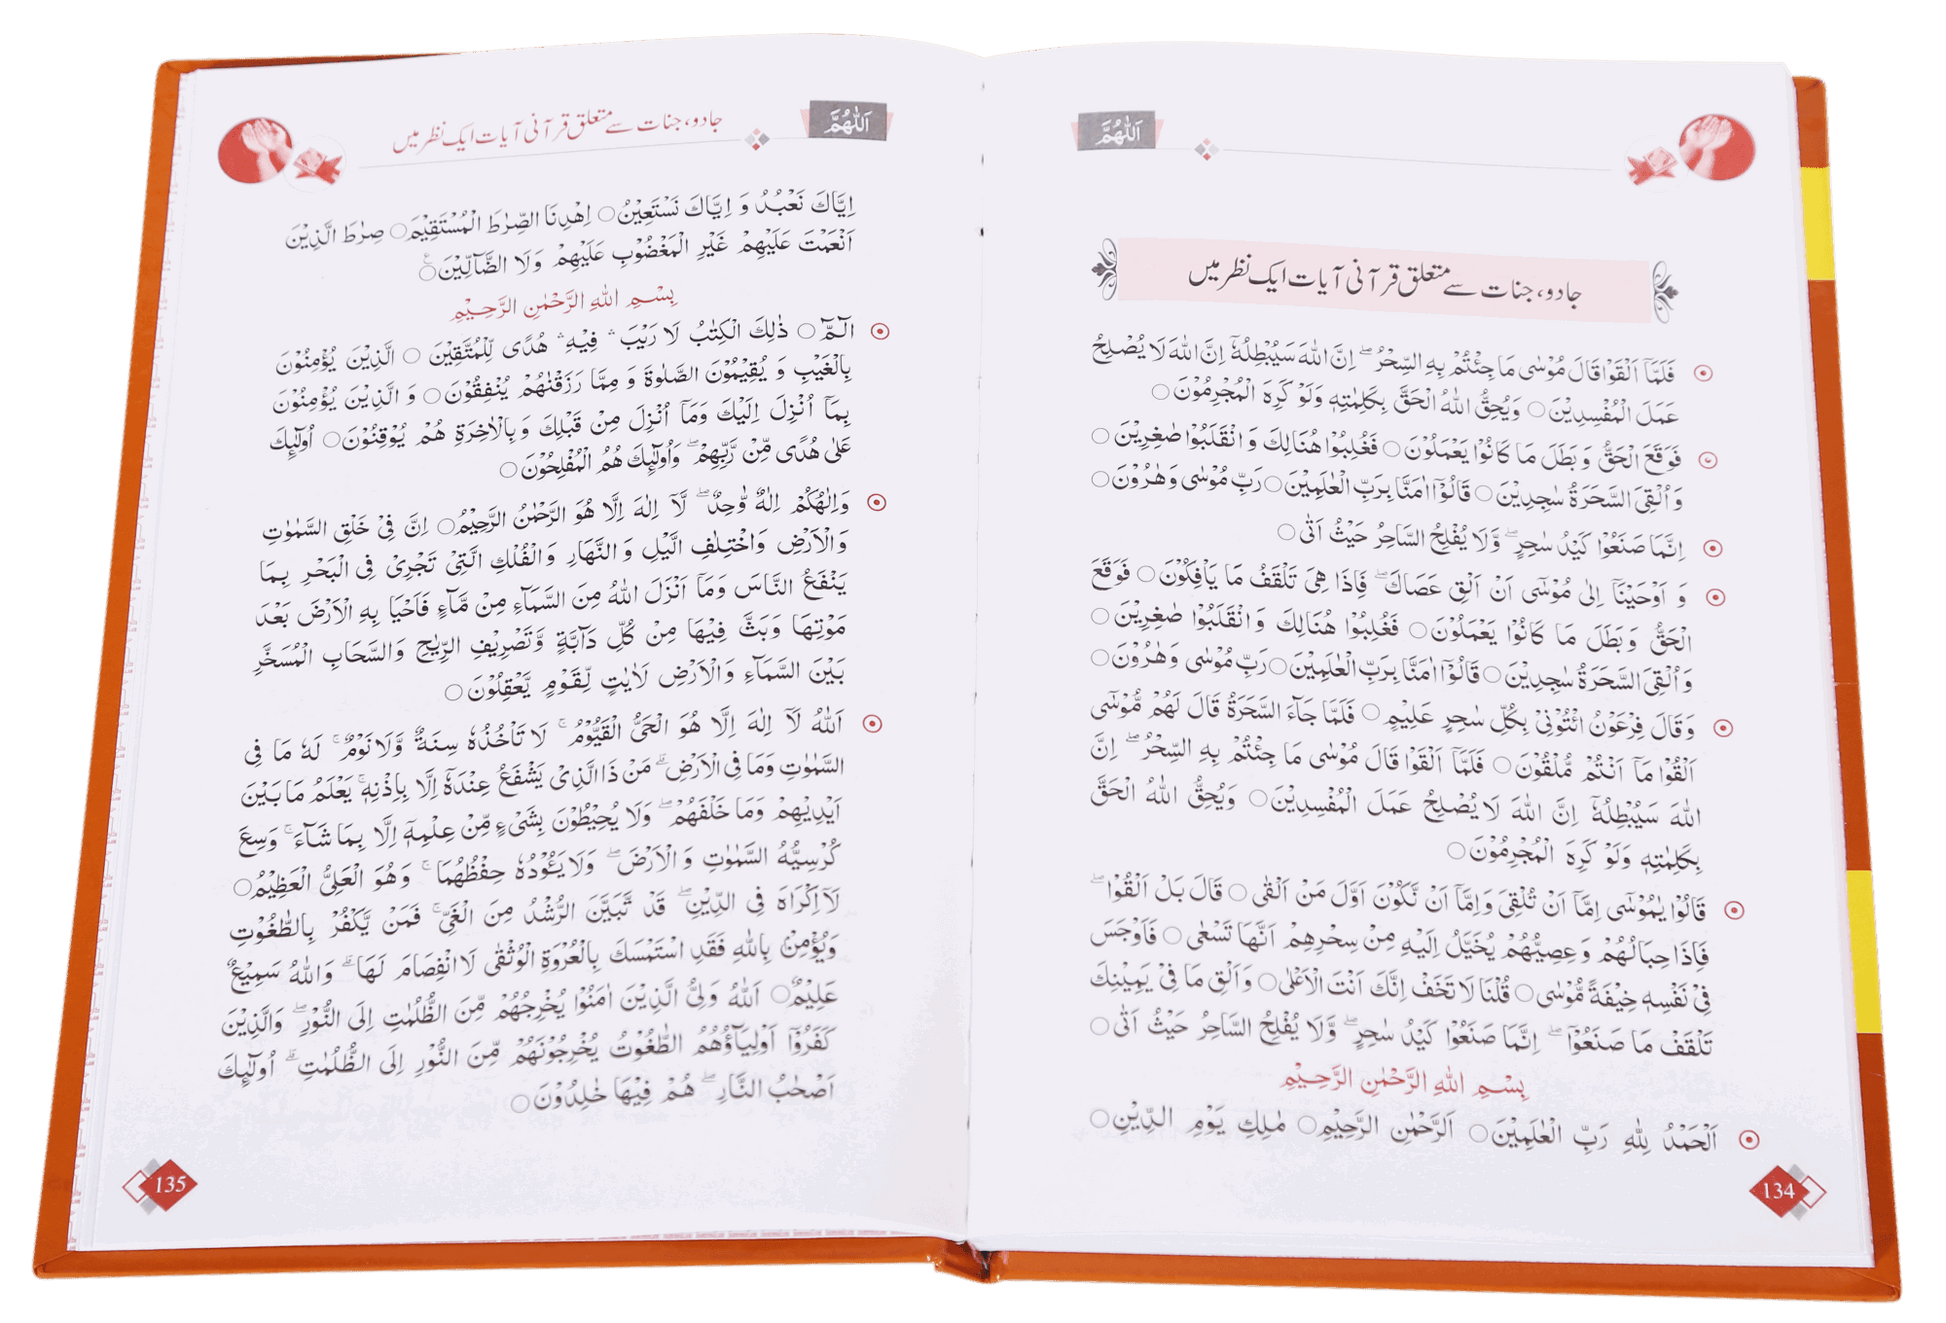 اَللّٰهُمَّ
جادو، جنات سے متعلق قرآنی آیات ایک نظر میں
فَلَمَّاۤ اَلْقَوْا قَالَ مُوْسٰى مَا جِئْتُمْ بِهِ السِّحْرُ ؕ اِنَّ اللّٰهَ سَيُبْطِلُهٗ اِنَّ اللّٰهَ لَا يُصْلِحُ
عَمَلَ الْمُفْسِدِيْنَ○ وَيُحِقُّ اللّٰهُ الْحَقَّ بِكَلِمٰتِهٖ وَلَوْ كَرِهَ الْمُجْرِمُوْنَ○
فَوَقَعَ الْحَقُّ وَ بَطَلَ مَا كَانُوْا يَعْمَلُوْنَ○ فَغُلِبُوْا هُنَالِكَ وَ انْقَلَبُوْا صٰغِرِيْنَ○
وَ اُلْقِيَ السَّحَرَةُ سٰجِدِيْنَ○ قَالُوْۤا اٰمَنَّا بِرَبِّ الْعٰلَمِيْنَ○ رَبِّ مُوْسٰى وَ هٰرُوْنَ○
اِنَّمَا صَنَعُوْا كَيْدُ سٰحِرٍ ؕ وَّلَا يُفْلِحُ السَّاحِرُ حَيْثُ اَتٰى○
وَ اَوْحَيْنَاۤ اِلٰى مُوْسٰۤى اَنْ اَلْقِ عَصَاكَ ۚ فَاِذَا هِيَ تَلْقَفُ مَا يَاْفِكُوْنَ○ فَوَقَعَ
الْحَقُّ وَ بَطَلَ مَا كَانُوْا يَعْمَلُوْنَ○ فَغُلِبُوْا هُنَالِكَ وَ انْقَلَبُوْا صٰغِرِيْنَ○
وَ اُلْقِيَ السَّحَرَةُ سٰجِدِيْنَ○ قَالُوْۤا اٰمَنَّا بِرَبِّ الْعٰلَمِيْنَ○ رَبِّ مُوْسٰى وَ هٰرُوْنَ○
وَ قَالَ فِرْعَوْنُ ائْتُوْنِيْ بِكُلِّ سٰحِرٍ عَلِيْمٍ○ فَلَمَّا جَآءَ السَّحَرَةُ قَالَ لَهُمْ مُّوْسٰۤى
اَلْقُوْا مَاۤ اَنْتُمْ مُّلْقُوْنَ○ فَلَمَّاۤ اَلْقَوْا قَالَ مُوْسٰى مَا جِئْتُمْ بِهِ السِّحْرُ ؕ اِنَّ
اللّٰهَ سَيُبْطِلُهٗ اِنَّ اللّٰهَ لَا يُصْلِحُ عَمَلَ الْمُفْسِدِيْنَ○ وَيُحِقُّ اللّٰهُ الْحَقَّ
بِكَلِمٰتِهٖ وَلَوْ كَرِهَ الْمُجْرِمُوْنَ○
قَالُوْا يٰمُوْسٰۤى اِمَّاۤ اَنْ تُلْقِيَ وَاِمَّاۤ اَنْ نَّكُوْنَ اَوَّلَ مَنْ اَلْقٰى○ قَالَ بَلْ اَلْقُوْا ۚ
فَاِذَا حِبَالُهُمْ وَ عِصِيُّهُمْ يُخَيَّلُ اِلَيْهِ مِنْ سِحْرِهِمْ اَنَّهَا تَسْعٰى○ فَاَوْجَسَ
فِيْ نَفْسِهٖ خِيْفَةً مُّوْسٰى○ قُلْنَا لَا تَخَفْ اِنَّكَ اَنْتَ الْاَعْلٰى○ وَاَلْقِ مَا فِيْ يَمِيْنِكَ
تَلْقَفْ مَا صَنَعُوْا ؕ اِنَّمَا صَنَعُوْا كَيْدُ سٰحِرٍ ؕ وَّلَا يُفْلِحُ السَّاحِرُ حَيْثُ اَتٰى○
بِسْمِ اللّٰهِ الرَّحْمٰنِ الرَّحِيْمِ
اَلْحَمْدُ لِلّٰهِ رَبِّ الْعٰلَمِيْنَ○ اَلرَّحْمٰنِ الرَّحِيْمِ○ مٰلِكِ يَوْمِ الدِّيْنِ○
134
اَللّٰهُمَّ
جادو، جنات سے متعلق قرآنی آیات ایک نظر میں
اِيَّاكَ نَعْبُدُ وَ اِيَّاكَ نَسْتَعِيْنُ○ اِهْدِنَا الصِّرٰطَ الْمُسْتَقِيْمَ○ صِرٰطَ الَّذِيْنَ
اَنْعَمْتَ عَلَيْهِمْ غَيْرِ الْمَغْضُوْبِ عَلَيْهِمْ وَلَا الضَّآلِّيْنَ○
بِسْمِ اللّٰهِ الرَّحْمٰنِ الرَّحِيْمِ
الٓمّٓ○ ذٰلِكَ الْكِتٰبُ لَا رَيْبَ ۛ فِيْهِ ۛ هُدًى لِّلْمُتَّقِيْنَ○ الَّذِيْنَ يُؤْمِنُوْنَ
بِالْغَيْبِ وَ يُقِيْمُوْنَ الصَّلٰوةَ وَ مِمَّا رَزَقْنٰهُمْ يُنْفِقُوْنَ○ وَ الَّذِيْنَ يُؤْمِنُوْنَ
بِمَاۤ اُنْزِلَ اِلَيْكَ وَمَاۤ اُنْزِلَ مِنْ قَبْلِكَ وَ بِالْاٰخِرَةِ هُمْ يُوْقِنُوْنَ○ اُولٰٓئِكَ
عَلٰى هُدًى مِّنْ رَّبِّهِمْ ۗ وَاُولٰٓئِكَ هُمُ الْمُفْلِحُوْنَ○
وَاِلٰهُكُمْ اِلٰهٌ وَّاحِدٌ ۚ لَاۤ اِلٰهَ اِلَّا هُوَ الرَّحْمٰنُ الرَّحِيْمُ○ اِنَّ فِيْ خَلْقِ السَّمٰوٰتِ
وَالْاَرْضِ وَاخْتِلٰفِ الَّيْلِ وَ النَّهَارِ وَ الْفُلْكِ الَّتِيْ تَجْرِيْ فِى الْبَحْرِ بِمَا
يَنْفَعُ النَّاسَ وَمَاۤ اَنْزَلَ اللّٰهُ مِنَ السَّمَآءِ مِنْ مَّآءٍ فَاَحْيَا بِهِ الْاَرْضَ بَعْدَ
مَوْتِهَا وَ بَثَّ فِيْهَا مِنْ كُلِّ دَآبَّةٍ وَّتَصْرِيْفِ الرِّيٰحِ وَالسَّحَابِ الْمُسَخَّرِ
بَيْنَ السَّمَآءِ وَالْاَرْضِ لَاٰيٰتٍ لِّقَوْمٍ يَّعْقِلُوْنَ○
اَللّٰهُ لَاۤ اِلٰهَ اِلَّا هُوَ الْحَيُّ الْقَيُّوْمُ ۚ لَا تَاْخُذُهٗ سِنَةٌ وَّلَا نَوْمٌ ؕ لَهٗ مَا فِى
السَّمٰوٰتِ وَمَا فِى الْاَرْضِ ؕ مَنْ ذَا الَّذِيْ يَشْفَعُ عِنْدَهٗۤ اِلَّا بِاِذْنِهٖ ؕ يَعْلَمُ مَا بَيْنَ
اَيْدِيْهِمْ وَمَا خَلْفَهُمْ ۚ وَلَا يُحِيْطُوْنَ بِشَيْءٍ مِّنْ عِلْمِهٖۤ اِلَّا بِمَا شَآءَ ۚ وَسِعَ
كُرْسِيُّهُ السَّمٰوٰتِ وَ الْاَرْضَ ۚ وَلَا يَـُٔوْدُهٗ حِفْظُهُمَا ۚ وَهُوَ الْعَلِيُّ الْعَظِيْمُ○
لَاۤ اِكْرَاهَ فِى الدِّيْنِ ۙ قَدْ تَّبَيَّنَ الرُّشْدُ مِنَ الْغَيِّ ۚ فَمَنْ يَّكْفُرْ بِالطّٰغُوْتِ
وَيُؤْمِنْ بِاللّٰهِ فَقَدِ اسْتَمْسَكَ بِالْعُرْوَةِ الْوُثْقٰى لَا انْفِصَامَ لَهَا ؕ وَاللّٰهُ سَمِيْعٌ
عَلِيْمٌ○ اَللّٰهُ وَلِيُّ الَّذِيْنَ اٰمَنُوْا يُخْرِجُهُمْ مِّنَ الظُّلُمٰتِ اِلَى النُّوْرِ ؕ وَالَّذِيْنَ
كَفَرُوْۤا اَوْلِيٰٓؤُهُمُ الطّٰغُوْتُ يُخْرِجُوْنَهُمْ مِّنَ النُّوْرِ اِلَى الظُّلُمٰتِ ؕ اُولٰٓئِكَ
اَصْحٰبُ النَّارِ ۚ هُمْ فِيْهَا خٰلِدُوْنَ○
135